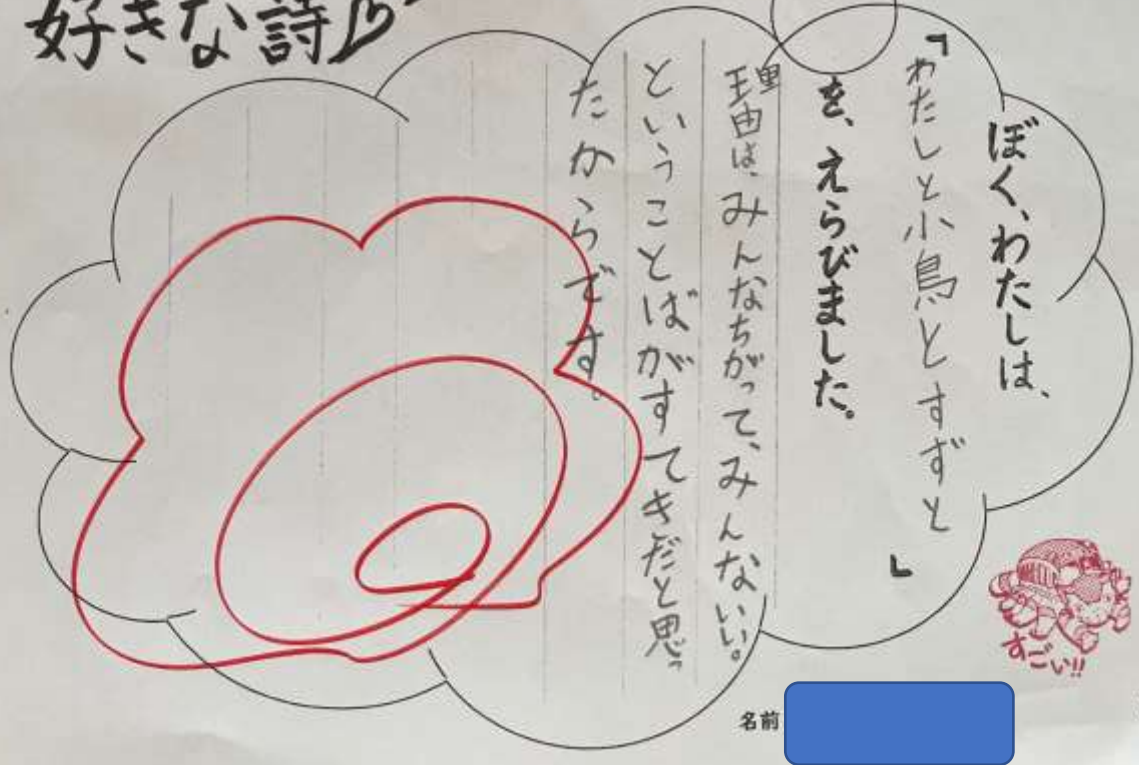 好きな詩
ぼく、わたしは、
「わたしと小鳥とすずと」
を、えらびました。
理由は、みんなちがって、みんないい。
ということばがすてキだと思っ
たからです。
すごい!!
名前